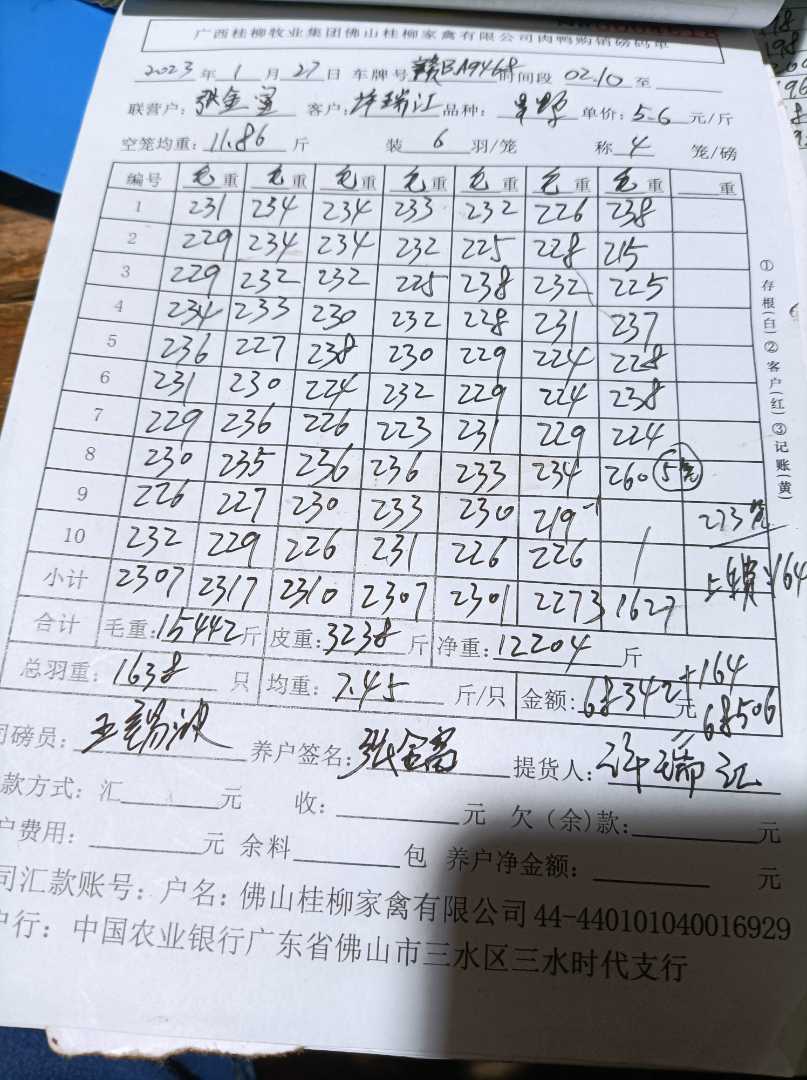 广西桂柳牧业集团佛山桂柳家禽有限公司肉鸭购销磅码单
2023年1月27日 车牌号 赣BA9468 时间段 02.10 至
联营户: 张金 客户: 许瑞江 品种: 单价: 5.6 元/斤
空笼均重: 11.86 斤 装 6 羽/笼 称 4 笼/磅
编号 毛重 毛重 毛重 毛重 毛重 毛重 毛重 重
1 231 234 234 233 232 226 238
2 229 234 234 232 225 228 215
3 229 232 232 225 238 232 225
4 234 233 230 232 228 231 237
5 236 227 238 230 229 224 228
6 231 230 224 232 229 224 238
7 229 236 226 223 231 229 224
8 230 235 236 236 233 234 260 5笼
9 226 227 230 233 230 219 -1 / 273笼
10 232 229 226 231 226 226
小计 2307 2317 2310 2307 2301 2273 1627 ¥164
合计 毛重: 15442 斤 皮重: 3238 斤 净重: 12204 斤
总羽重: 1638 只 均重: 7.45 斤/只 金额: 68342 元 +164
= 68506
司磅员: 王锡波 养户签名: 张金 提货人: 许瑞江
款方式: 汇 元 收: 元 欠(余)款: 元
户费用: 元 余料 包 养户净金额: 元
司汇款账号: 户名: 佛山桂柳家禽有限公司 44-440101040016929
户行: 中国农业银行广东省佛山市三水区三水时代支行
①存根(白)②客户(红)③记账(黄)